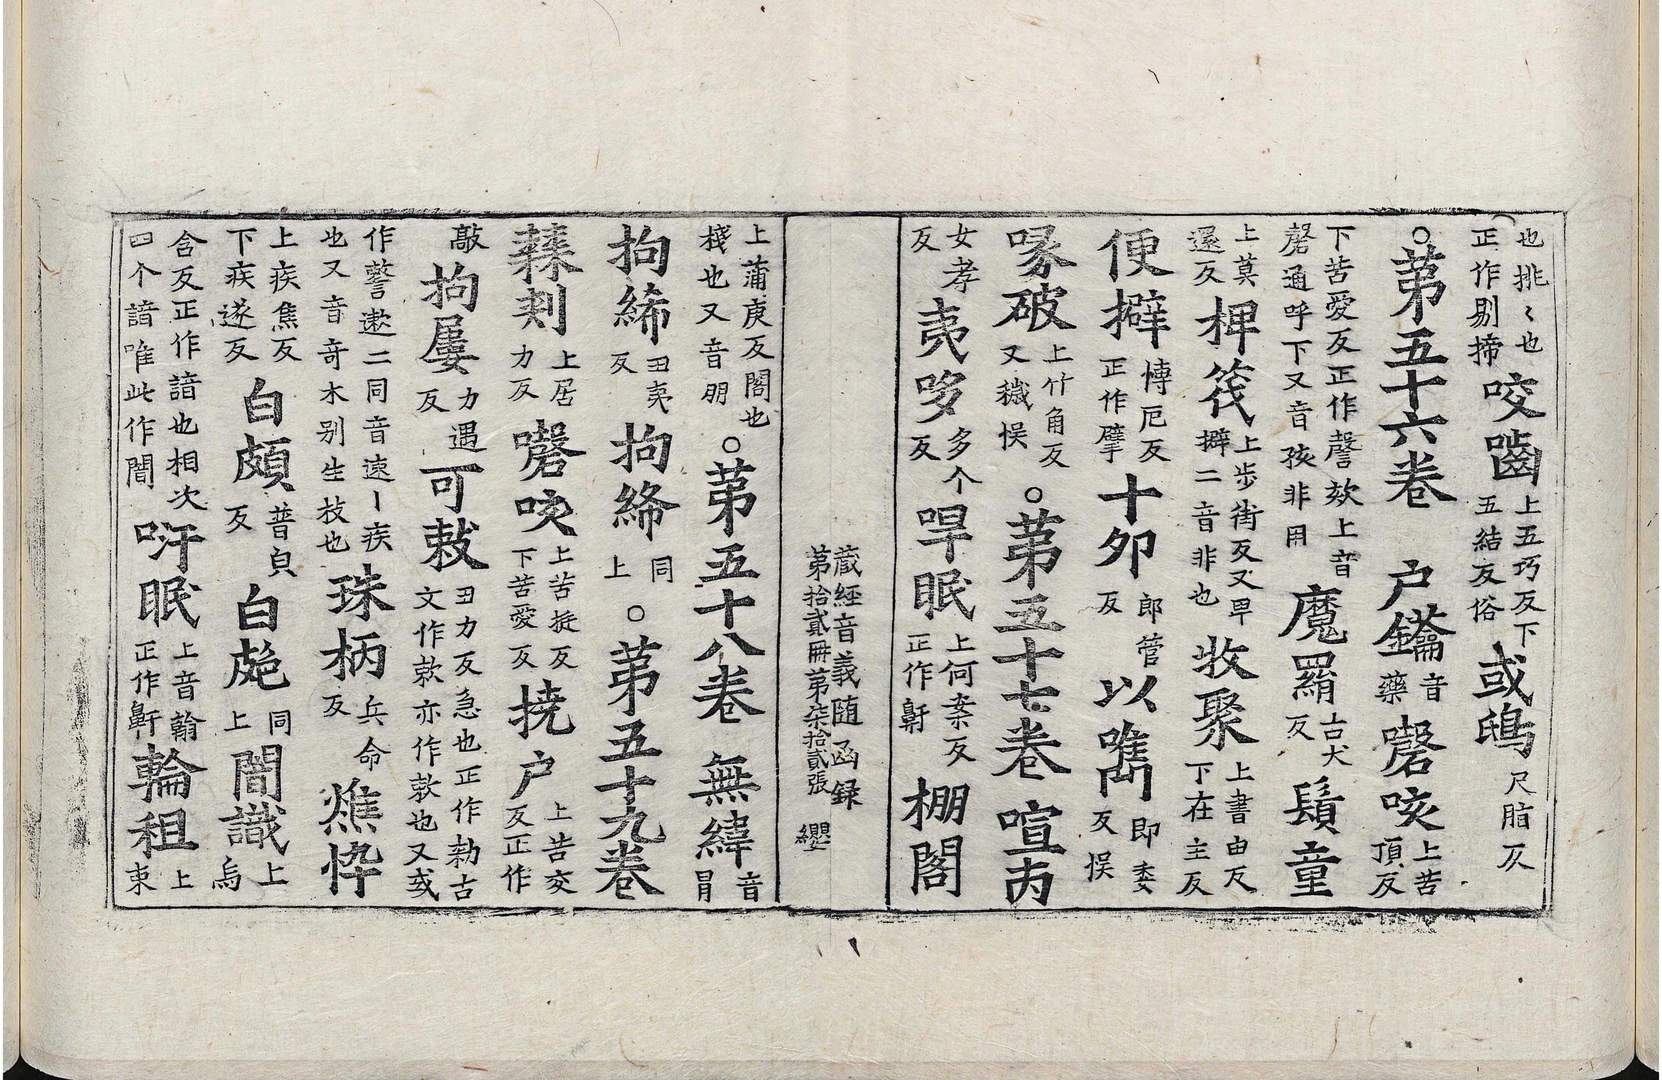 也挑〻也正作剔揥咬嚙上五巧反下五結反俗或鴟尺脂反
○第五十六卷　户鑰音藥磬咳上苦頂反
下苦愛反正作謦欬上音磬通呼下又音孩非用魔羂古犬反鬚童
上莫還反椑筏上步街反又早擗二音非也收聚上書由反下在主反
便擗愽厄反正作擘十夘郎管反以嶲即委反悮
啄破上竹角反又穢悮○第五十七卷　喧丙
女孝反夷哆多个反哻眠上何案反正作鼾棚閣
藏經音義随函録
第拾貳冊第柒拾貳張　纓
上蒲庚反閣也棧也又音朋○第五十八卷　無緯音胃
拘絺丑夷反拘絺同上○第五十九卷
蕀刾上居力反磬咳上苦挺反下苦愛反撓户上苦交反正作
敲拘屢力遇反可敕丑力反急也正作勑古文作欶亦作欶也又或
作謷遬二同音速丨疾也又音竒木别生枝也珠柄兵命反燋悴
上疾焦反下疾遂反白頗普貟反白皰同上闇識上烏
含反正作諳也相次四个諳唯此作闇哻眠上音翰正作鼾輪租上東